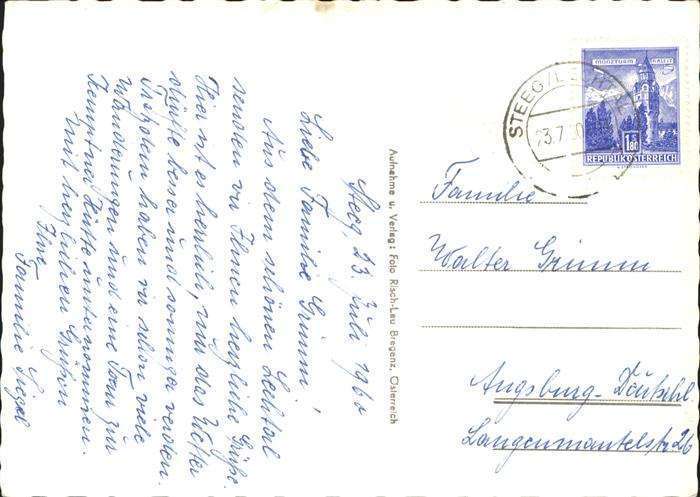 Steeg, 23. Juli 1960
Liebe Familie Grimm!
Aus dem schönen Lechtal
senden wir Ihnen herzliche Grüße.
Hier ist es herrlich, nur das Wetter
müßte besser und sonniger werden.
Trotzdem haben wir schon viele
Wanderungen und eine Tour zur
Kemptner Hütte unternommen.
Mit herzlichen Grüßen
Ihre
Familie Siegel
Aufnahme u. Verlag: Foto Risch-Lau Bregenz, Österreich
STEEG/LECHTAL
23.7.
MÜNZTURM HALL I/T
1.80
S
REPUBLIK ÖSTERREICH
Familie
Walter Grimm
Augsburg-Deutschl.
Langenmantelstr 26